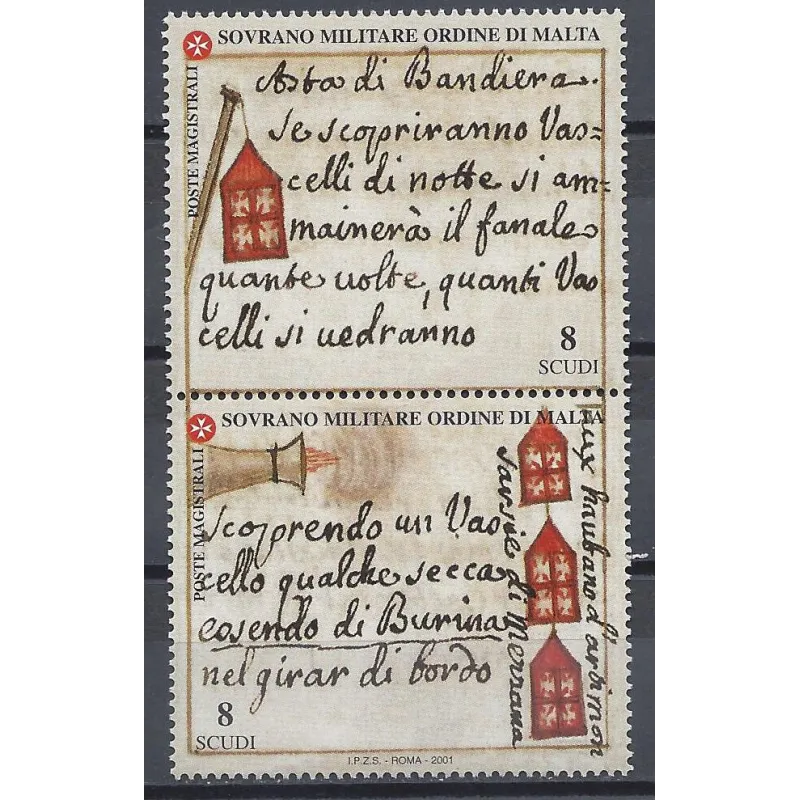 SOVRANO MILITARE ORDINE DI MALTA
POSTE MAGISTRALI
Asta di Bandiera.
se scopriranno Vas=
celli di notte si am=
mainerà il fanale
quante volte, quanti Vas
celli si vedranno
8
SCUDI
SOVRANO MILITARE ORDINE DI MALTA
POSTE MAGISTRALI
scoprendo un Vas
cello qualche secca
eosendo di Burina
nel girar di bordo
sarsie di mezzana
aux haubans d'artimon
8
SCUDI
I.P.Z.S. - ROMA - 2001